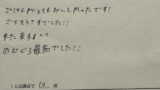 ごはんがとてもおいしかったです!
ごちそうさまでした!!
また来ます
のどぐろ最高でした!!